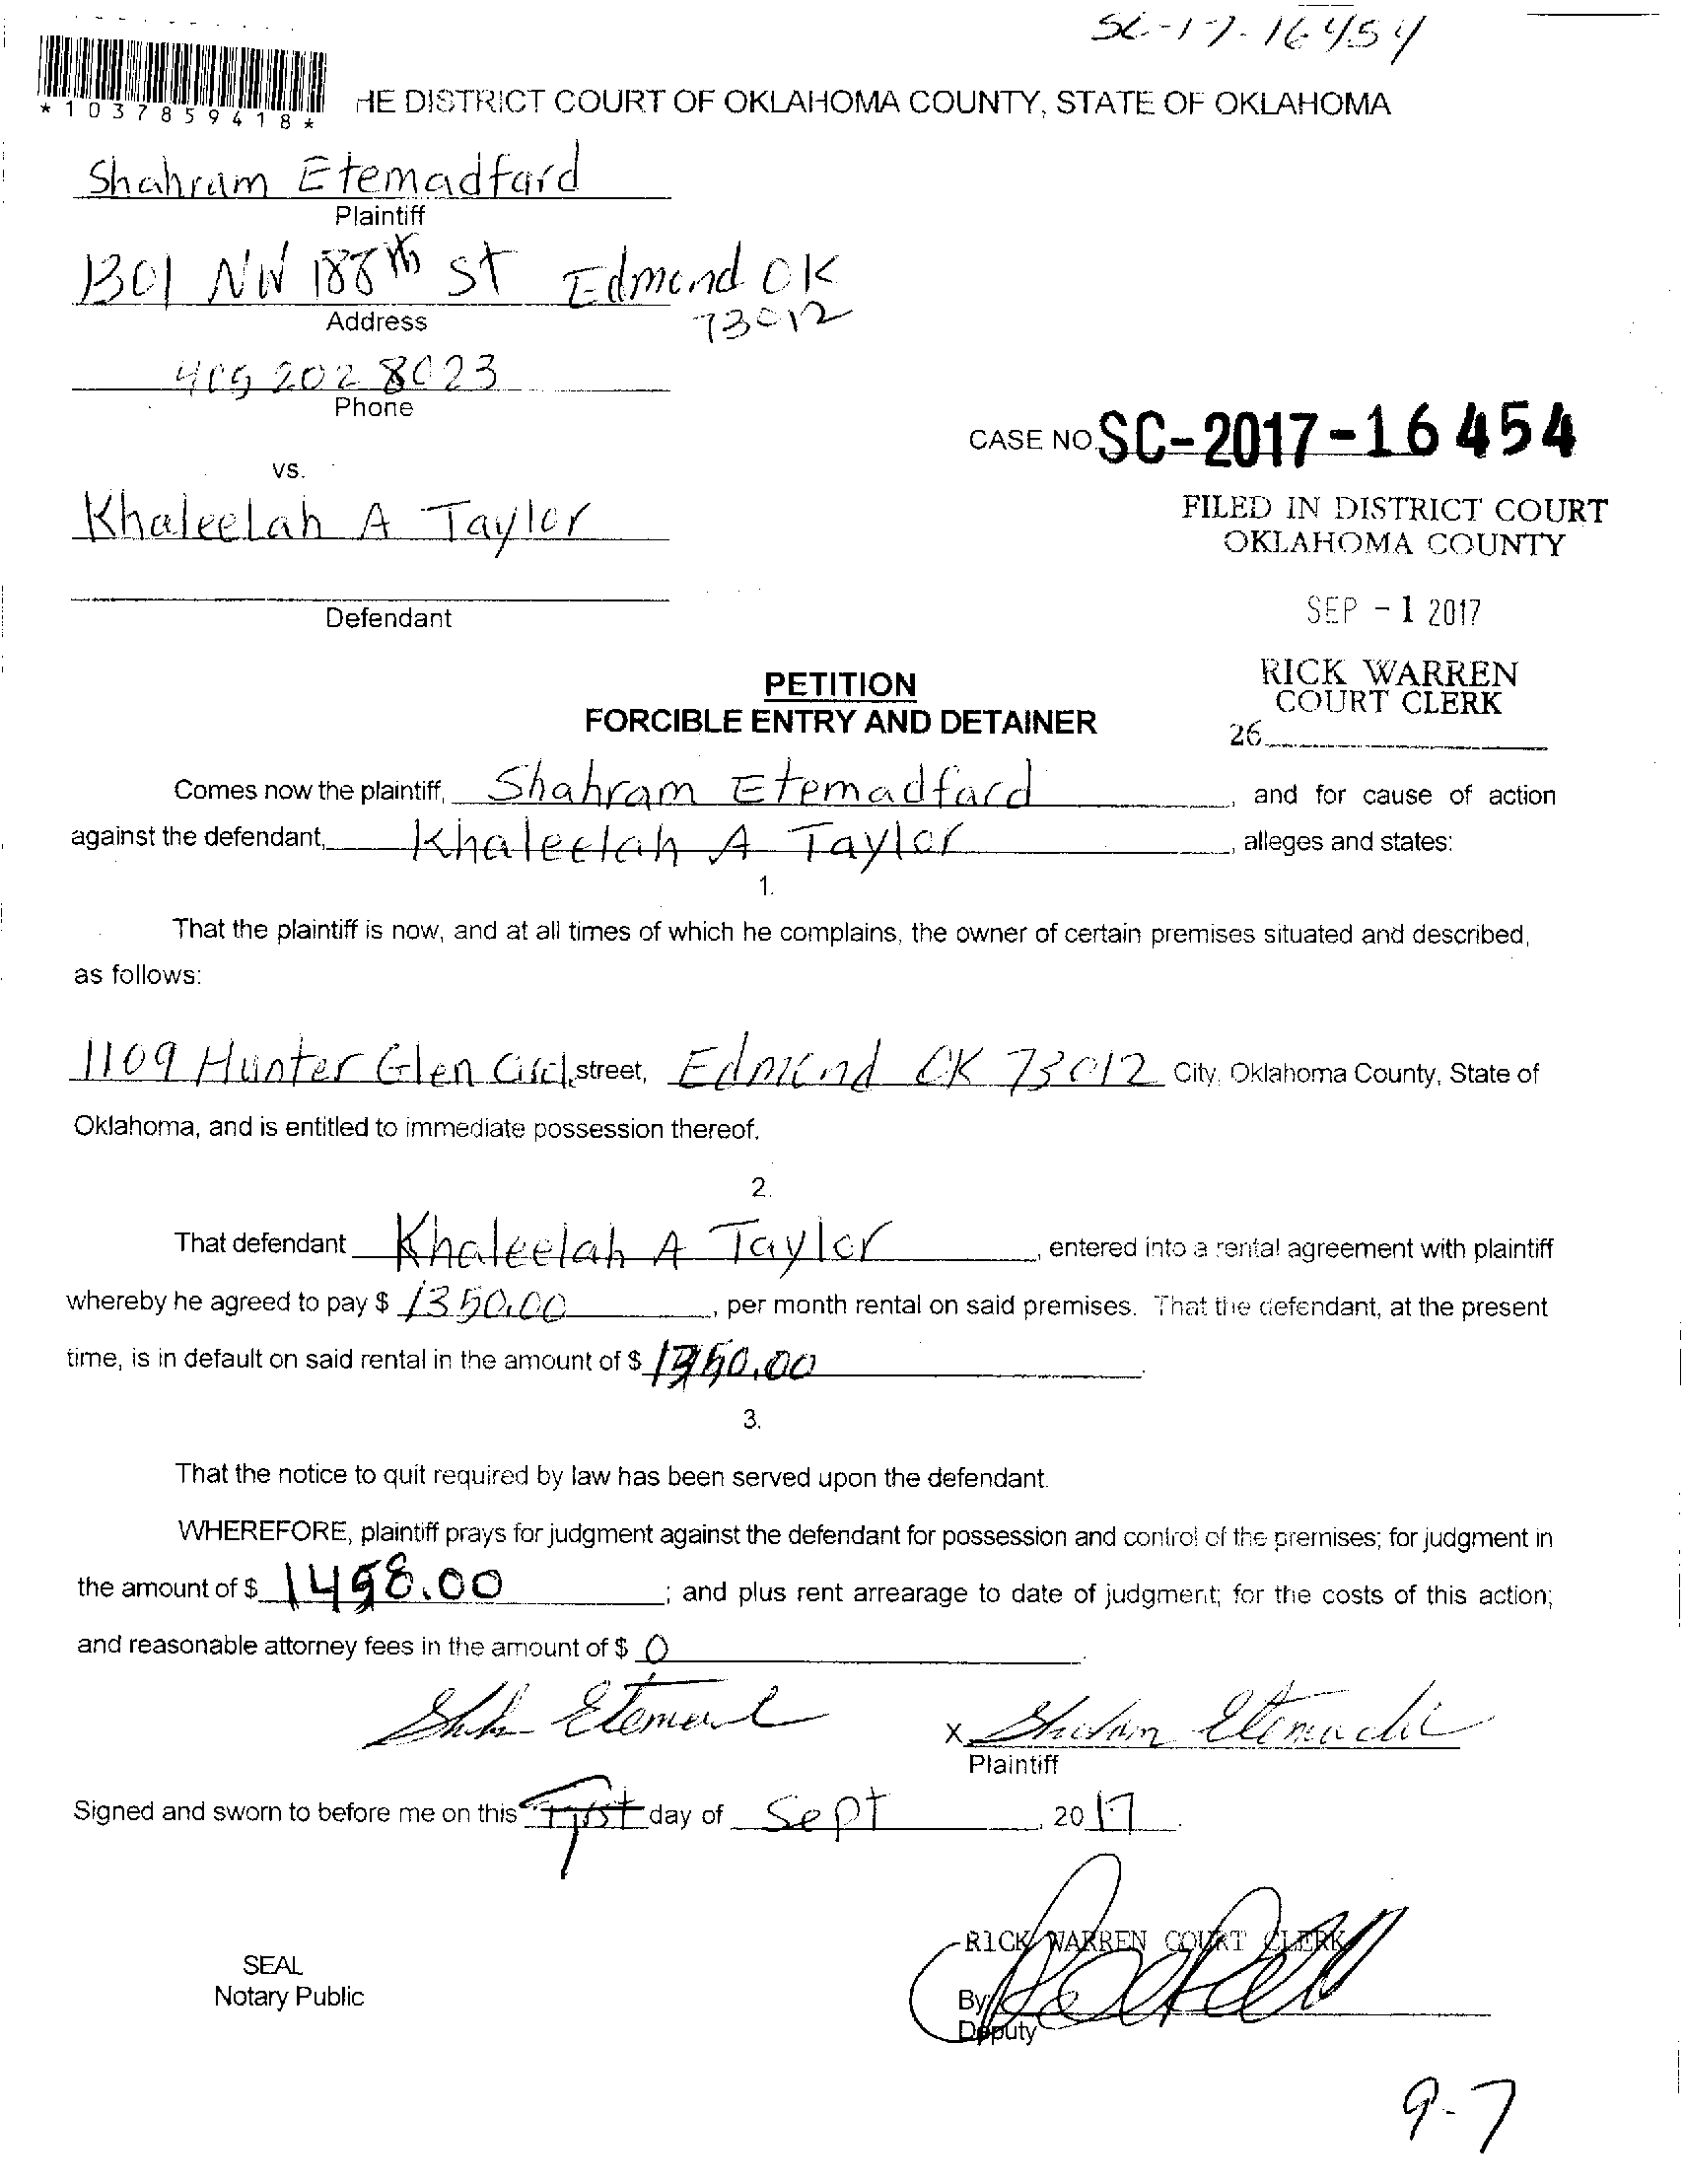 SC-17-16454
*1037859418*
HE DISTRICT COURT OF OKLAHOMA COUNTY, STATE OF OKLAHOMA
Shahram Etemadfard
Plaintiff
1301 NW 188th St Edmond OK
73012
Address
405 202 8023
Phone
CASE NO. SC-2017-16454
vs.
Khaleelah A Taylor
FILED IN DISTRICT COURT
OKLAHOMA COUNTY
Defendant
SEP -1 2017
PETITION
RICK WARREN
COURT CLERK
FORCIBLE ENTRY AND DETAINER
26
Comes now the plaintiff, Shahram Etemadfard, and for cause of action
against the defendant, Khaleelah A Taylor, alleges and states:
1.
That the plaintiff is now, and at all times of which he complains, the owner of certain premises situated and described,
as follows:
1109 Hunter Glen Circl. street, Edmond OK 73012 City, Oklahoma County, State of
Oklahoma, and is entitled to immediate possession thereof.
2.
That defendant Khaleelah A Taylor, entered into a rental agreement with plaintiff
whereby he agreed to pay $ 1350.00, per month rental on said premises. That the defendant, at the present
time, is in default on said rental in the amount of $ 1350.00.
3.
That the notice to quit required by law has been served upon the defendant.
WHEREFORE, plaintiff prays for judgment against the defendant for possession and control of the premises; for judgment in
the amount of $ 1498.00; and plus rent arrearage to date of judgment; for the costs of this action;
and reasonable attorney fees in the amount of $ 0.
X
Plaintiff
Signed and sworn to before me on this First day of Sept, 2017.
RICK WARREN COURT CLERK
SEAL
Notary Public
By
Deputy
9-7